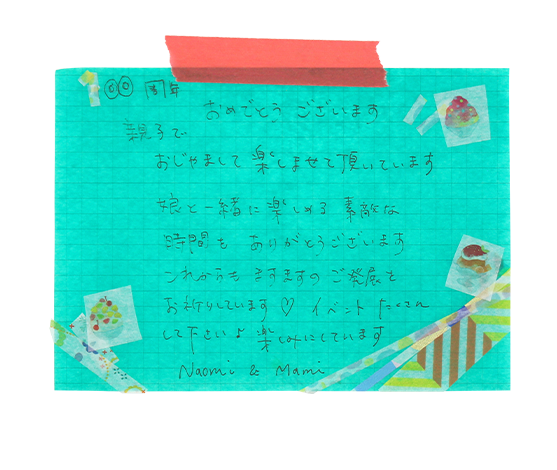 100周年
おめでとう ございます
親子で
おじゃまして 楽しませて頂いています
娘と一緒に楽しめる 素敵な
時間も ありがとうございます
これからも ますますの ご発展を
お祈りしています♡ イベント たくさん
して下さい♪ 楽しみにしています
Naomi & Mami